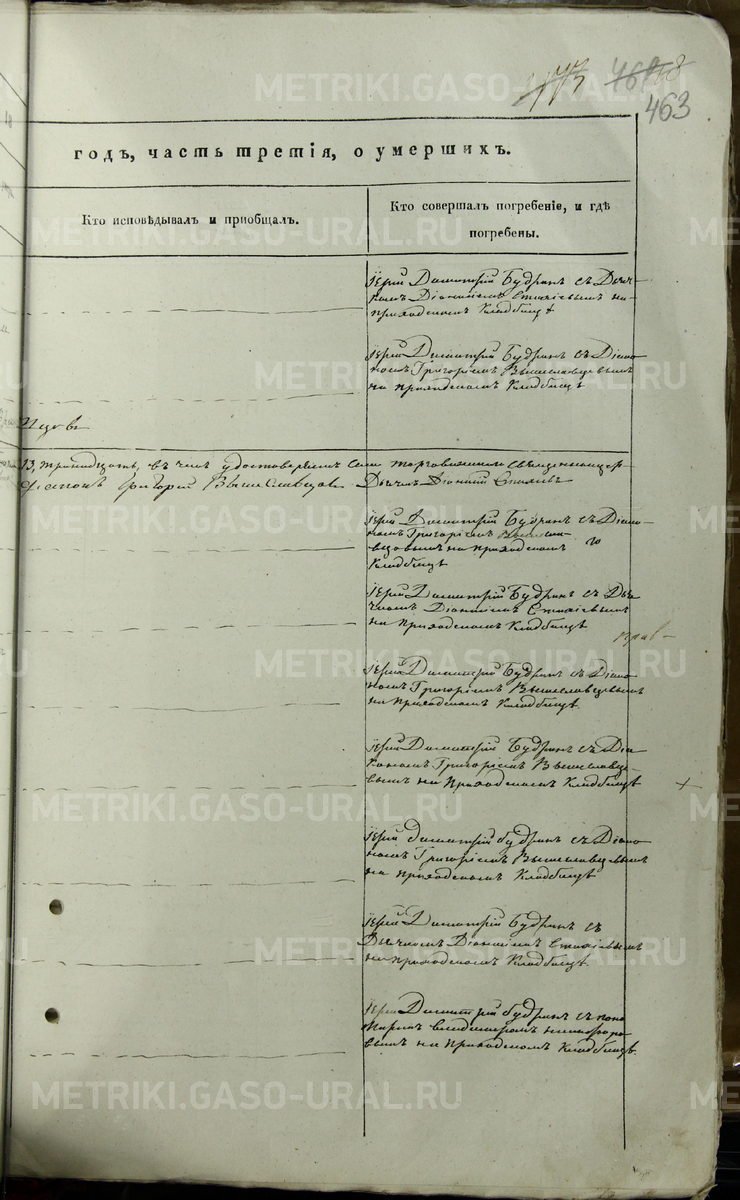 463
годъ, часть третія, о умершихъ.
Кто исповѣдывалъ и пріобщалъ.
Кто совершалъ погребеніе, и гдѣ
погребены.
Іерей Димитрій Будринъ съ Дьяч-
комъ Діонисіемъ Стахіевымъ на
приходскомъ Кладбищѣ
Іерей Димитрій Будринъ съ Діако-
номъ Григоріемъ Вышеславцевымъ
на приходскомъ Кладбищѣ
13, тринадцать, въ чемъ удостовѣряемъ
Діаконъ Григорій Вышеславцевъ Дьячекъ Діонисій Стахіевъ
Іерей Димитрій Будринъ съ Діако-
номъ Григоріемъ Вышесла-
вцовымъ на приходскомъ
Кладбищѣ
Іерей Димитрій Будринъ съ Дья-
чкомъ Діонисіемъ Стахіевымъ
на приходскомъ Кладбищѣ
Іерей Димитрій Будринъ съ Діако-
номъ Григоріемъ Вышеславцевымъ
на приходскомъ Кладбищѣ
Іерей Димитрій Будринъ съ Діа-
кономъ Григоріемъ Вышеславце-
вымъ на приходскомъ Кладбищѣ
Іерей Димитрій Будринъ съ Діако-
номъ Григоріемъ Вышеславцевымъ
на приходскомъ Кладбищѣ
Іерей Димитрій Будринъ съ
Дьячкомъ Діонисіемъ Стахіевымъ
на приходскомъ Кладбищѣ
Іерей Димитрій Будринъ съ поно-
маремъ Владимиромъ Никифоро-
вымъ на приходскомъ Кладбищѣ.
METRIKI.GASO-URAL.RU